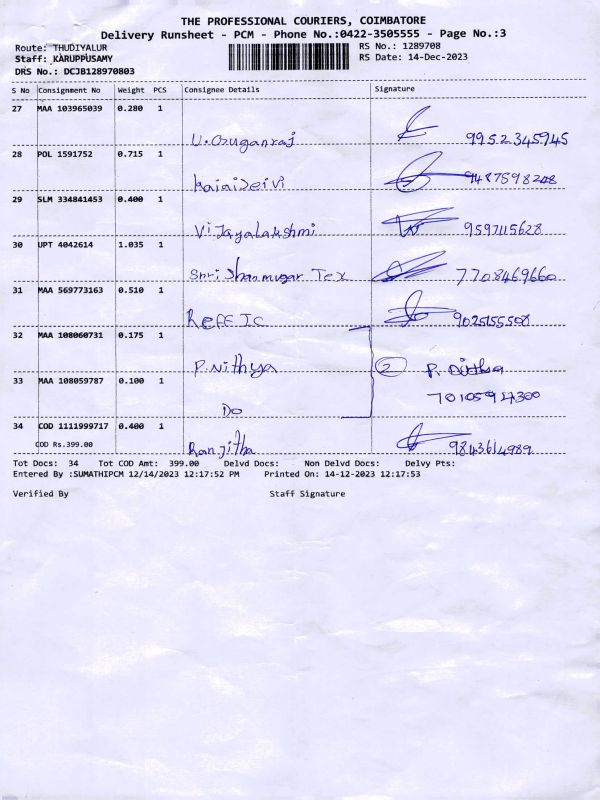 THE PROFESSIONAL COURIERS, COIMBATORE
Delivery Runsheet - PCM - Phone No.:0422-3505555 - Page No.:3
Route: THUDIYALUR RS No.: 1289708
Staff: KARUPPUSAMY RS Date: 14-Dec-2023
DRS No.: DCJB128970803
S No Consignment No Weight PCS Consignee Details Signature
27 MAA 103965039 0.280 1
9952345945
28 POL 1591752 0.715 1
29 SLM 334841453 0.400 1
Vijayalakshmi 9597115628
30 UPT 4042614 1.035 1
Shri Shanmugar Tex 7708469660
31 MAA 569773163 0.510 1
9025155508
32 MAA 108060731 0.175 1
P.Nithya 2 P. Nithya
33 MAA 108059787 0.100 1
Do
34 COD 1111999717 0.400 1
COD Rs.399.00 Ranjitha 9843614989
Tot Docs: 34 Tot COD Amt: 399.00 Delvd Docs: Non Delvd Docs: Delvy Pts:
Entered By :SUMATHIPCM 12/14/2023 12:17:52 PM Printed On: 14-12-2023 12:17:53
Verified By Staff Signature